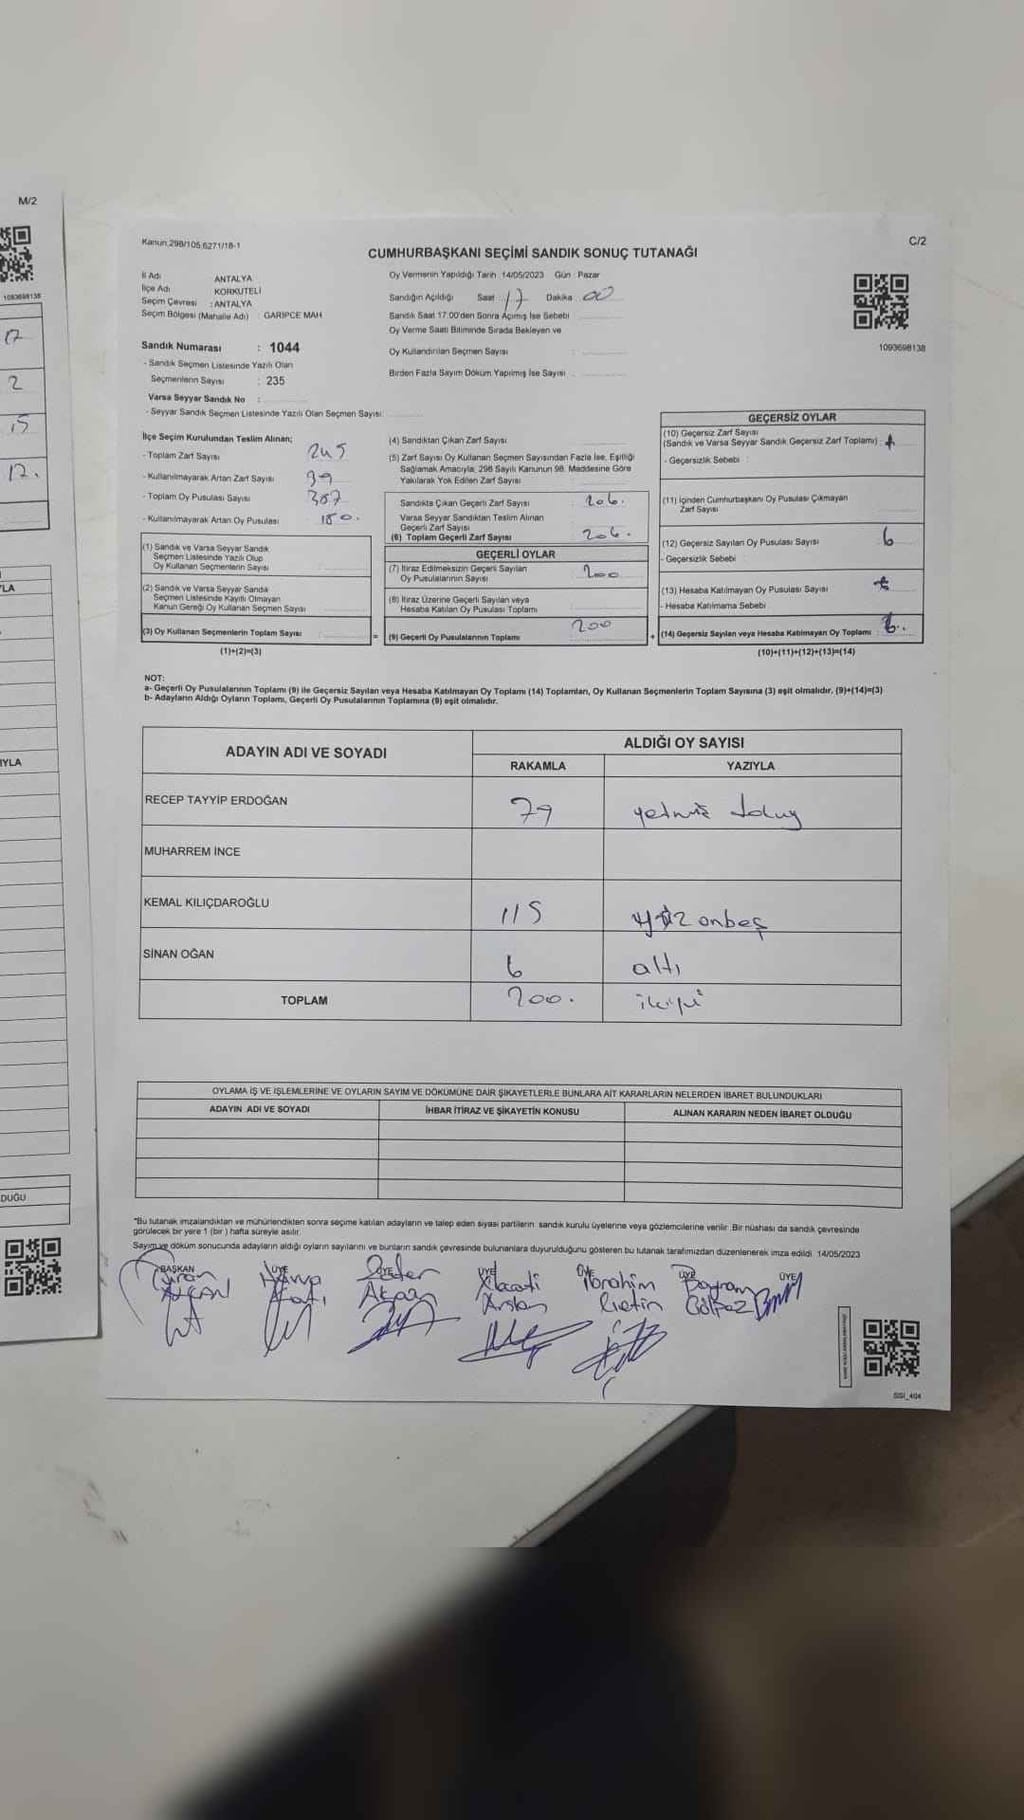 M/2
1093698138
17
2
15
17.
LA
IYLA
DUĞU
Kanun 298/105,6271/18-1
C/2
CUMHURBAŞKANI SEÇİMİ SANDIK SONUÇ TUTANAĞI
İl Adı ANTALYA
İlçe Adı KORKUTELİ
Seçim Çevresi : ANTALYA
Seçim Bölgesi (Mahalle Adı) : GARİPCE MAH
Sandık Numarası : 1044
- Sandık Seçmen Listesinde Yazılı Olan
Seçmenlerin Sayısı : 235
Varsa Seyyar Sandık No :
- Seyyar Sandık Seçmen Listesinde Yazılı Olan Seçmen Sayısı:
Oy Vermenin Yapıldığı Tarih :14/05/2023 Gün : Pazar
Sandığın Açıldığı Saat 17 Dakika 00
Sandık Saat 17:00'den Sonra Açımış İse Sebebi
Oy Verme Saati Bitiminde Sırada Bekleyen ve
Oy Kullandırılan Seçmen Sayısı :
Birden Fazla Sayım Döküm Yapılmış İse Sayısı
1093698138
İlçe Seçim Kurulundan Teslim Alınan;
- Toplam Zarf Sayısı 245
- Kullanılmayarak Artan Zarf Sayısı 39
- Toplam Oy Pusulası Sayısı 387
- Kullanılmayarak Artan Oy Pusulası 180.
(1) Sandık ve Varsa Seyyar Sandık
Seçmen Listesinde Yazılı Olup
Oy Kullanan Seçmenlerin Sayısı
(2) Sandık ve Varsa Seyyar Sandık
Seçmen Listesinde Kayıtlı Olmayan
Kanun Gereği Oy Kullanan Seçmen Sayısı
(3) Oy Kullanan Seçmenlerin Toplam Sayısı
=
(1)+(2)=(3)
(4) Sandıktan Çıkan Zarf Sayısı
(5) Zarf Sayısı Oy Kullanan Seçmen Sayısından Fazla İse, Eşitliği
Sağlamak Amacıyla, 298 Sayılı Kanunun 98. Maddesine Göre
Yakılarak Yok Edilen Zarf Sayısı
Sandıkta Çıkan Geçerli Zarf Sayısı 206.
Varsa Seyyar Sandıktan Teslim Alınan
Geçerli Zarf Sayısı
(6) Toplam Geçerli Zarf Sayısı 206.
GEÇERLİ OYLAR
(7) İtiraz Edilmeksizin Geçerli Sayılan
Oy Pusulalarının Sayısı 200
(8) İtiraz Üzerine Geçerli Sayılan veya
Hesaba Katılan Oy Pusulası Toplamı
(9) Geçerli Oy Pusulalarının Toplamı 200
+
GEÇERSİZ OYLAR
(10) Geçersiz Zarf Sayısı
(Sandık ve Varsa Seyyar Sandık Geçersiz Zarf Toplamı) :
- Geçersizlik Sebebi :
(11) İçinden Cumhurbaşkanı Oy Pusulası Çıkmayan
Zarf Sayısı
(12) Geçersiz Sayılan Oy Pusulası Sayısı 6
- Geçersizlik Sebebi
(13) Hesaba Katılmayan Oy Pusulası Sayısı
- Hesaba Katılmama Sebebi
(14) Geçersiz Sayılan veya Hesaba Katılmayan Oy Toplamı : 6.
(10)+(11)+(12)+(13)=(14)
NOT:
a- Geçerli Oy Pusulalarının Toplamı (9) ile Geçersiz Sayılan veya Hesaba Katılmayan Oy Toplamı (14) Toplamları, Oy Kullanan Seçmenlerin Toplam Sayısına (3) eşit olmalıdır. (9)+(14)=(3)
b- Adayların Aldığı Oyların Toplamı, Geçerli Oy Pusulalarının Toplamına (9) eşit olmalıdır.
ADAYIN ADI VE SOYADI
ALDIĞI OY SAYISI
RAKAMLA YAZIYLA
RECEP TAYYİP ERDOĞAN 79 yetmiş dokuz
MUHARREM İNCE
KEMAL KILIÇDAROĞLU 115 yüz onbeş
SİNAN OĞAN 6 altı
TOPLAM 200. ikiyü
OYLAMA İŞ VE İŞLEMLERİNE VE OYLARIN SAYIM VE DÖKÜMÜNE DAİR ŞİKAYETLERLE BUNLARA AİT KARARLARIN NELERDEN İBARET BULUNDUKLARI
ADAYIN ADI VE SOYADI İHBAR İTİRAZ VE ŞİKAYETİN KONUSU ALINAN KARARIN NEDEN İBARET OLDUĞU
*Bu tutanak imzalandıktan ve mühürlendikten sonra seçime katılan adayların ve talep eden siyasi partilerin sandık kurulu üyelerine veya gözlemcilerine verilir. Bir nüshası da sandık çevresinde
görülecek bir yere 1 (bir) hafta süreyle asılır.
Sayım ve döküm sonucunda adayların aldığı oyların sayılarını ve bunların sandık çevresinde bulunanlara duyurulduğunu gösteren bu tutanak tarafımızdan düzenlenerek imza edildi. 14/05/2023
BAŞKAN ÜYE ÜYE ÜYE ÜYE ÜYE ÜYE
İbrahim Bayram
Arslan Çetin
SSI_404